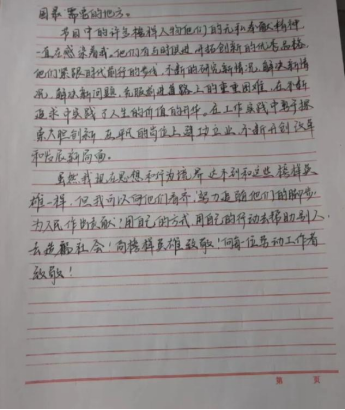 国最需要的地方。
节目中的许多榜样人物他们的无私奉献精神
一直在感染着我。他们有与时俱进、开拓创新的优秀品格。
他们紧跟时代前行的步伐，不断的研究新情况，解决新情
况，解决新问题，克服前进道路上的重重困难，在不断
追求中实践了人生的价值的升华。在工作实践中勇于探
索大胆创新，在平凡的岗位上建功立业，不断开创改革
和发展新局面。
虽然我现在思想和行为境界达不到和这些榜样英
雄一样，但我可以向他们看齐，努力追随他们的脚步，
为人民作出贡献！用自己的方式，用自己的行动去帮助别人，
去造福社会！向榜样英雄致敬！向每一位劳动工作者
致敬！
第 页